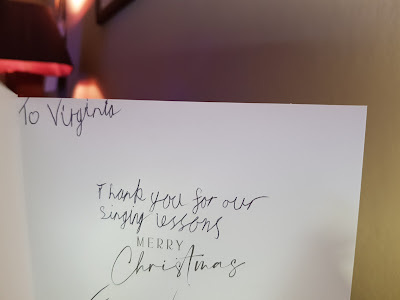 To Virginia
Thank you for our
singing lessons
MERRY
Christmas